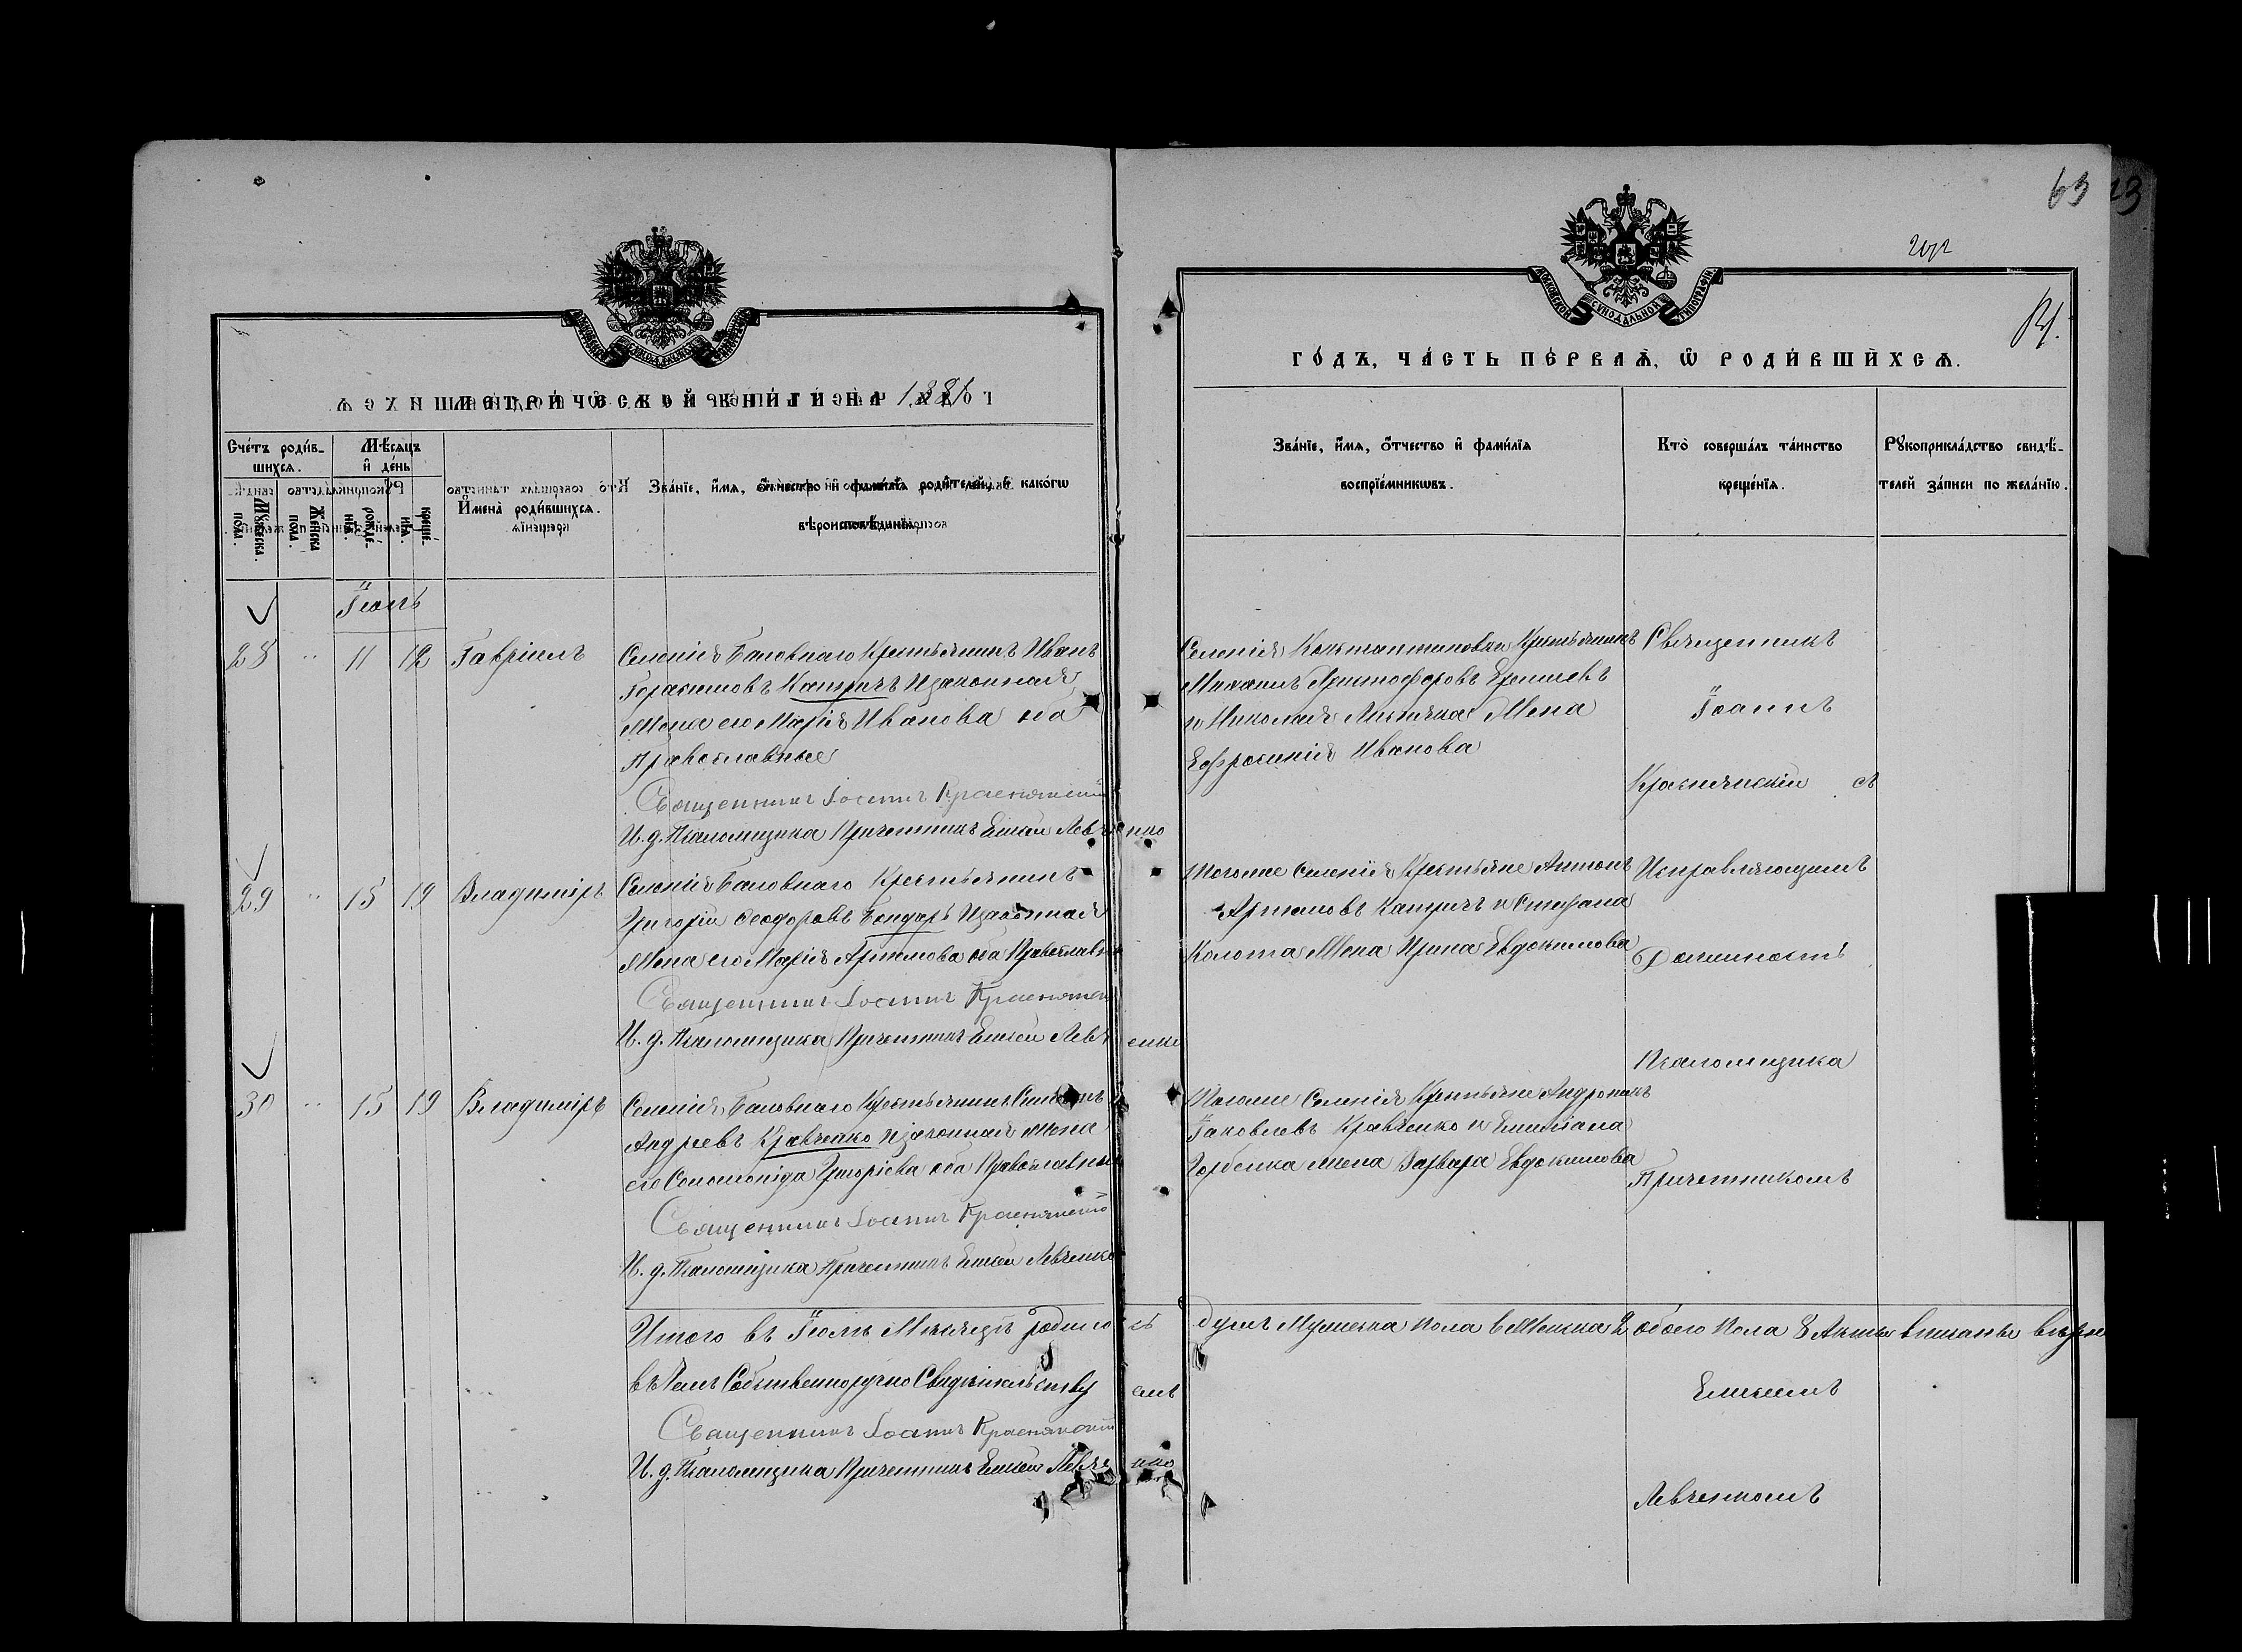 63
МЕТРИ́ЧЕСКОЙ КНИ́ГИ НА 1886
ГО́ДЪ, ЧА́СТЬ ПЕ́РВАѦ, Ѽ РОДИ́ВШИХСѦ.
Сче́тъ роди́в-
шихсѧ.
Мꙋ́жеска пола.
Же́нска пола.
Мѣ́сѧцъ
и҆ де́нь
рожде́нїѧ.
креще́нїѧ.
И҆мена̀ роди́вшихсѧ.
Зва́нїе, и҆́мѧ, ѻ҆́тчество и҆ фами́лїѧ роди́телей, и҆ како́гѡ
вѣроисповѣ́данїѧ.
Зва́нїе, и҆́мѧ, ѻ҆́тчество и҆ фами́лїѧ
воспрїе́мникѡвъ.
Кто̀ соверша́лъ та́инство
креще́нїѧ.
Рꙋкоприкла́дство свидѣ́-
телей за́писи по жела́нїю.
Іюль
28 " 11 12 Гавріилъ
Селенія Баловнаго Крестьянинъ Иванъ
Герасимовъ Катричъ И законная
Жена его Марія Иванова оба
Православные
Священникъ Іоаннъ Краснянскій
И. д. Псаломщика Причетникъ Елисей Левченко
Селенія Константиновки Крестьянинъ
Михаилъ Христофоровъ
и Николая Жена
Ефросинія Иванова
Священникъ
Іоаннъ
Краснянскій съ
29 " 15 19 Владиміръ
Селенія Баловнаго Крестьянинъ
Григорій Феодоровъ Бондарь И законная
Жена его Марія Артемова оба Православные
Священникъ Іоаннъ Краснянскій
И. д. Псаломщика Причетникъ Елисей Левченко
Тогоже Селенія Крестьяне Антонъ
Артемовъ Катричъ и Стефана
Колота Жена Ирина Евдокимова
Исправляющимъ
Должность
Псаломщика
30 " 15 19 Владиміръ
Селенія Баловнаго Крестьянинъ
Андреевъ Кравченко И законная жена
его Соломонида Григоріева оба Православные
Священникъ Іоаннъ Краснянскій
И. д. Псаломщика Причетникъ Елисей Левченко
Тогоже Селенія Крестьяне Андроникъ
Іаковлевъ Кравченко и Емиліана
Горбенка жена Варвара Евдокимова
Причетникомъ
Итого въ Іюль Мѣсяцѣ родилось душъ Мужеска пола 6 Женска 2 обоего пола 8 Акты вписаны вѣрно
въ чемъ Собственноручно Свидѣтельствуемъ
Елисеемъ
Священникъ Іоаннъ Краснянскій
И. д. Псаломщика Причетникъ Елисей Левченко
Левченкомъ